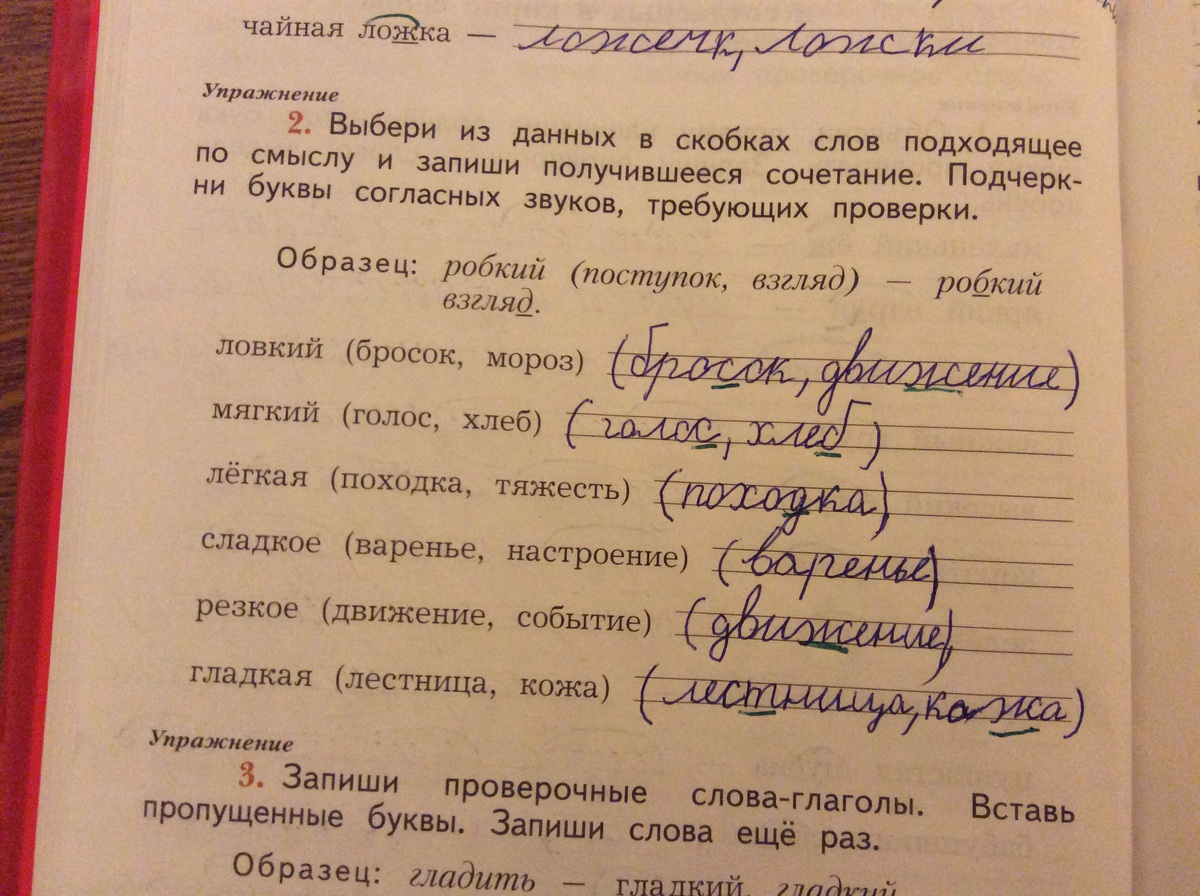 чайная ложка — ложечк, ложки
Упражнение
2. Выбери из данных в скобках слов подходящее
по смыслу и запиши получившееся сочетание. Подчерк-
ни буквы согласных звуков, требующих проверки.
Образец: робкий (поступок, взгляд) — робкий
взгляд.
ловкий (бросок, мороз) (бросок, движение)
мягкий (голос, хлеб) (голос, хлеб)
лёгкая (походка, тяжесть) (походка)
сладкое (варенье, настроение) (варенье)
резкое (движение, событие) (движение)
гладкая (лестница, кожа) (лестница, кожа)
Упражнение
3. Запиши проверочные слова-глаголы. Вставь
пропущенные буквы. Запиши слова ещё раз.
Образец: гладить — гладкий, гладкий